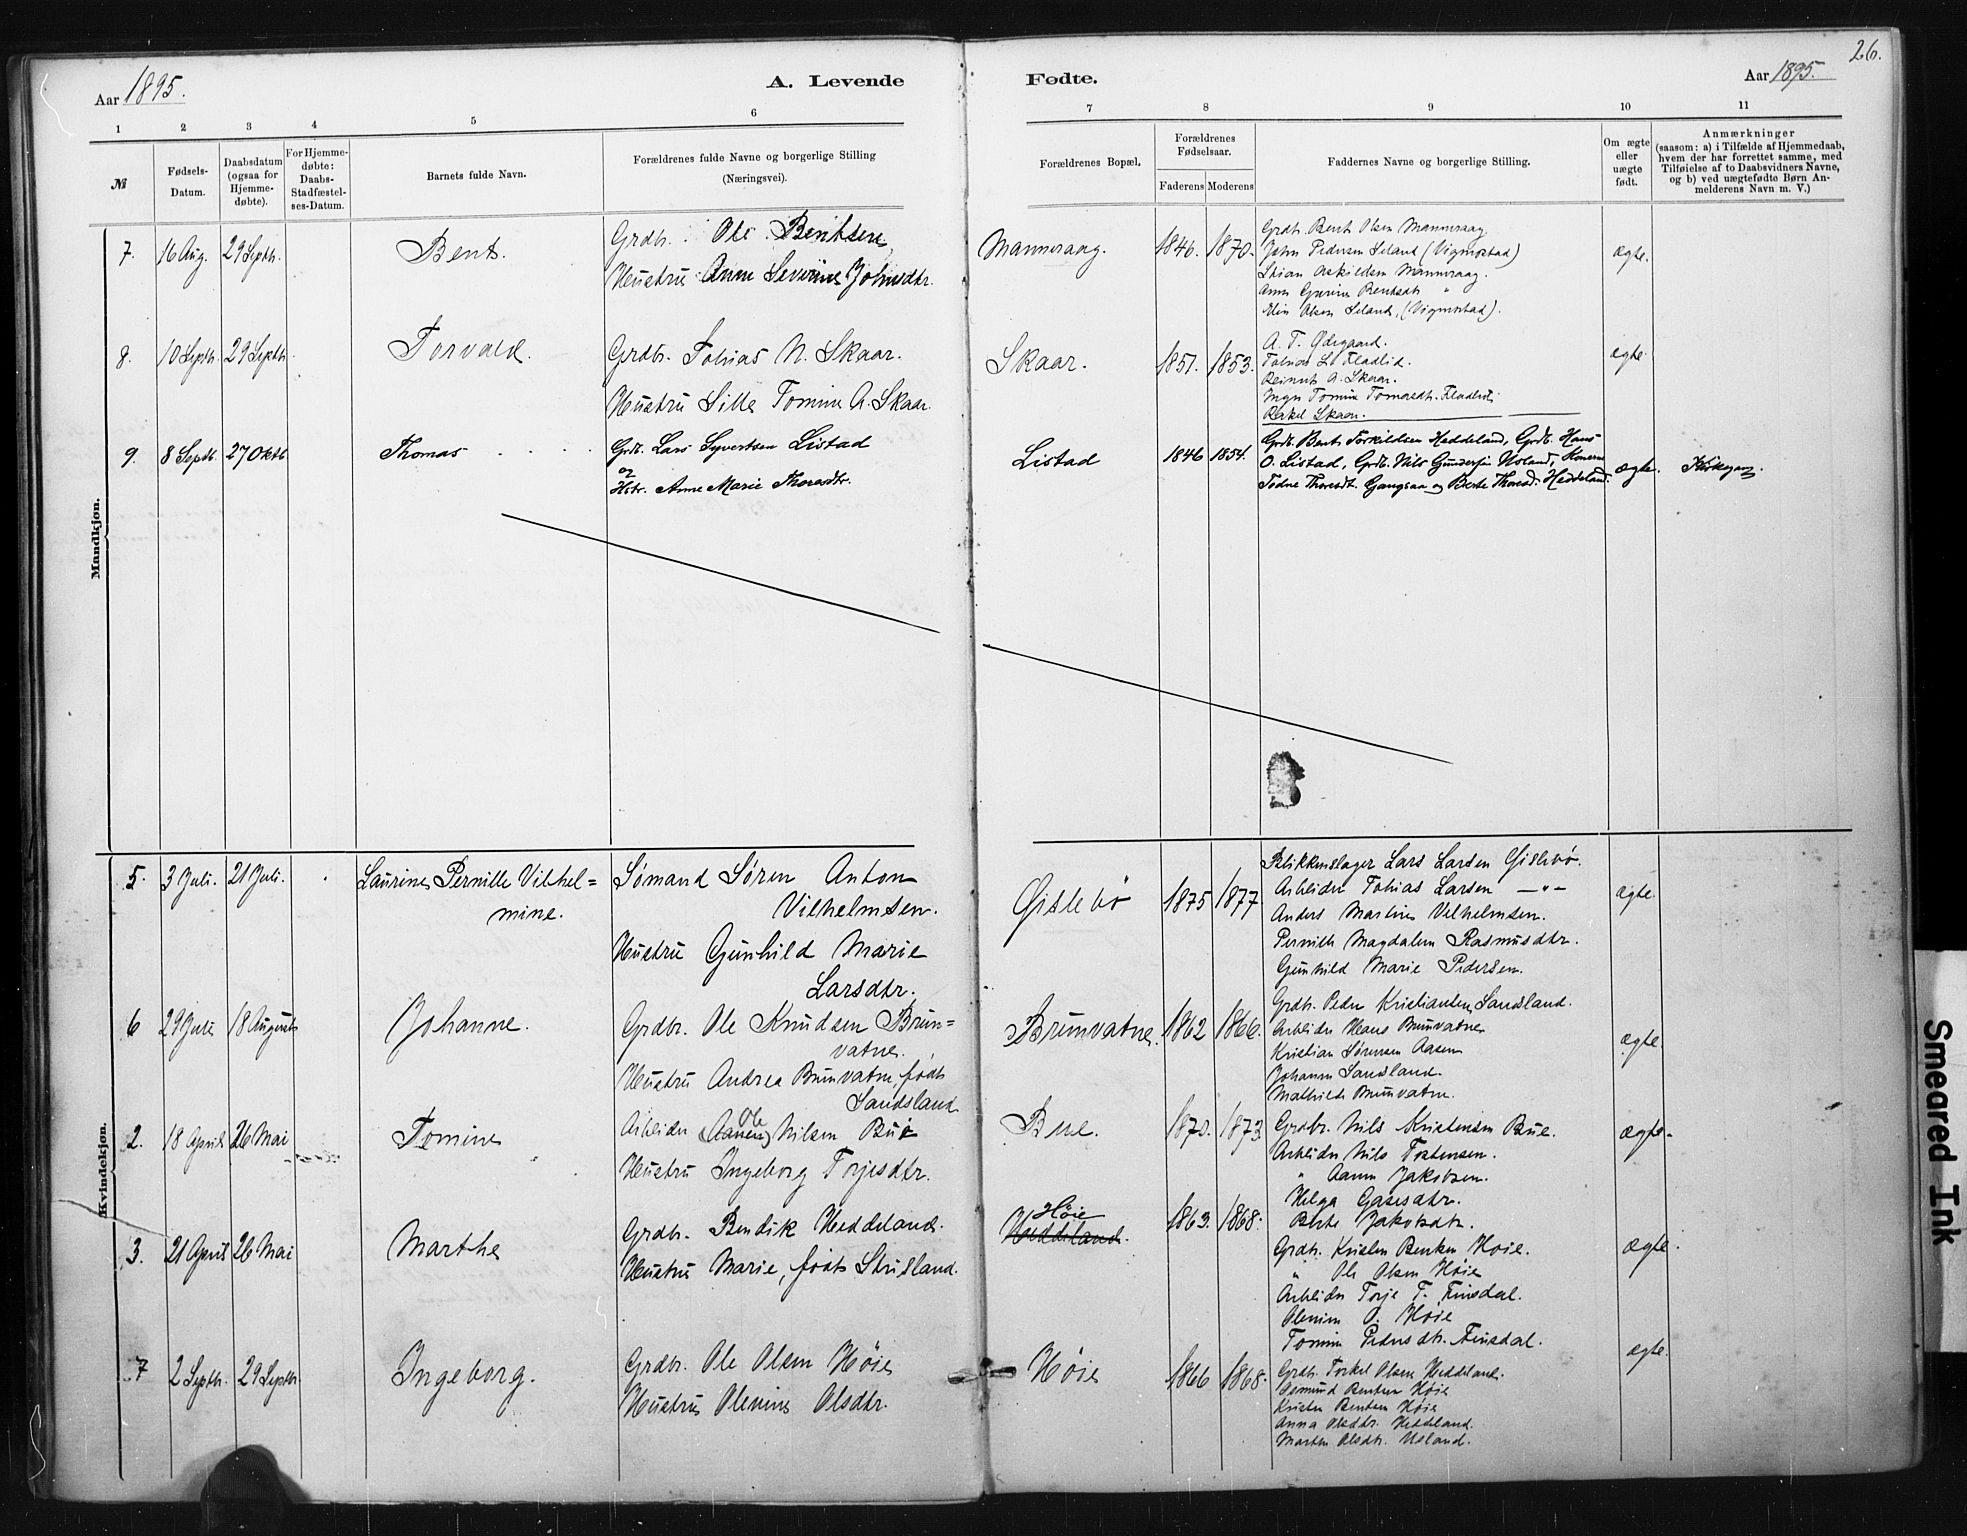 26.
Aar 1895.
A. Levende
Fødte.
Aar 1895.
1 2 3 4 5 6 7 8 9 10 11
№
Fødsels-Datum.
Daabsdatum (ogsaa for Hjemmedøbte).
For Hjemmedøbte: Daabs-Stadfæstelses-Datum.
Barnets fulde Navn.
Forældrenes fulde Navne og borgerlige Stilling
(Næringsvei).
Forældrenes Bopæl.
Forældrenes Fødselsaar.
Faderens Moderens
Faddernes Navne og borgerlige Stilling.
Om ægte eller uægte født.
Anmærkninger
(saasom: a) i Tilfælde af Hjemmedaab,
hvem der har forrettet samme, med
Tilføielse af to Daabsvidners Navne,
og b) ved uægtefødte Børn Anmelderens Navn m. V.)
Mandkjøn.
7. 16 Aug. 29 Septb. Bent. Grdbr. Ole Bentsen
Hustru Anne Severine Johnsdtr.
Mannsaag. 1846. 1870.
Grdb. Bent Olsen Mannsaag
John Pedersen Leland (Vigmostad)
Stian Askildsen Mannsaag.
Anne Gurine Bentsdtr "
Elin Olsen Leland, (Vigmostad).
ægte.
8. 10 Septb. 29 Septb. Torvald. Grdbr. Tobias N. Skaar.
Hustru Sille Tomine A. Skaar.
Skaar. 1851. 1853.
A. T. Ødegaard.
Tobias L. Fladlid.
Reinert A. Skaar.
Inger Tomine Tomasdtr. Fladlid
Rakel Skaar.
ægte.
9. 8 Septb. 27 Oktb Thomas
Grdb. Lars Syvertsen Listad
og
Hstr. Anne Marie Thoresdtr.
Listad 1846 1854.
Grdb. Bent Torkildsen Heddeland, Grdb. Hans
O. Listad, Grdb. Nils Gundersen Usland, Konerne
Todne Thoresdt. Gangsaa og Berte Thoresd. Heddeland.
ægte.
Kvindekjøn.
5. 3 Juli. 21 Juli. Laurine Pernille Vilhel=
mine.
Sømand Søren Anton
Vilhelmsen.
Hustru Gunhild Marie
Larsdtr.
Øislebø 1875 1877
Blikkenslager Lars Larsen Øislebø.
Arbeider Tobias Larsen —"—
Anders Martin Vilhelmsen.
Pernille Magdalene Rasmusdtr.
Gunhild Marie Pedersen.
ægte.
6 29 Juli 18 August Johanne.
Grdbr. Ole Knudsen Brun=
vatne.
Hustru Andrea Brunvatne, født
Sandsland
Brunvatne. 1862 1866.
Grdbr. Peder Kristiansen Sandsland.
Arbeider Hans Brunvatne
Kristian Sørensen Aasen
Johanne Sandsland.
Mathilde Brunvatne.
ægte.
2. 18 April 26 Mai Tomine
Arbeider (Aanen) Ole Nilsen Bue
Hustru Ingeborg Torjesdtr.
Bue. 1870. 1873.
Grdbr. Nils Kristensen Bue.
Arbeider Nils Tostensen.
" Aanen Jakobsen.
Helga Aasesdtr.
Berte Jakobsdtr.
ægte
3. 21 April 26 Mai Marthe
Grdbr. Bendik Heddeland.
Hustru Marie, født Stusland.
Høie
Heddeland. 1863. 1868.
Grdbr. Kristen Bentsen Høie.
" Ole Olsen Høie
Arbeider Torje T. Finsdal.
Olenine O. Høie
Tomine Pedersdtr. Finsdal.
ægte.
7 2 Septbr. 29 Septbr Ingeborg.
Grdbr. Ole Olsen Høie
Hustru Olenine Olsdtr.
Høie 1866 1868.
Grdbr. Torkel Olsen Heddeland.
Osmund Bentsen Høie
Kristen Bentsen Høie
Anna Olsdtr. Heddeland.
Marten Olsdtr. Usland.
ægte.
Smeared Ink